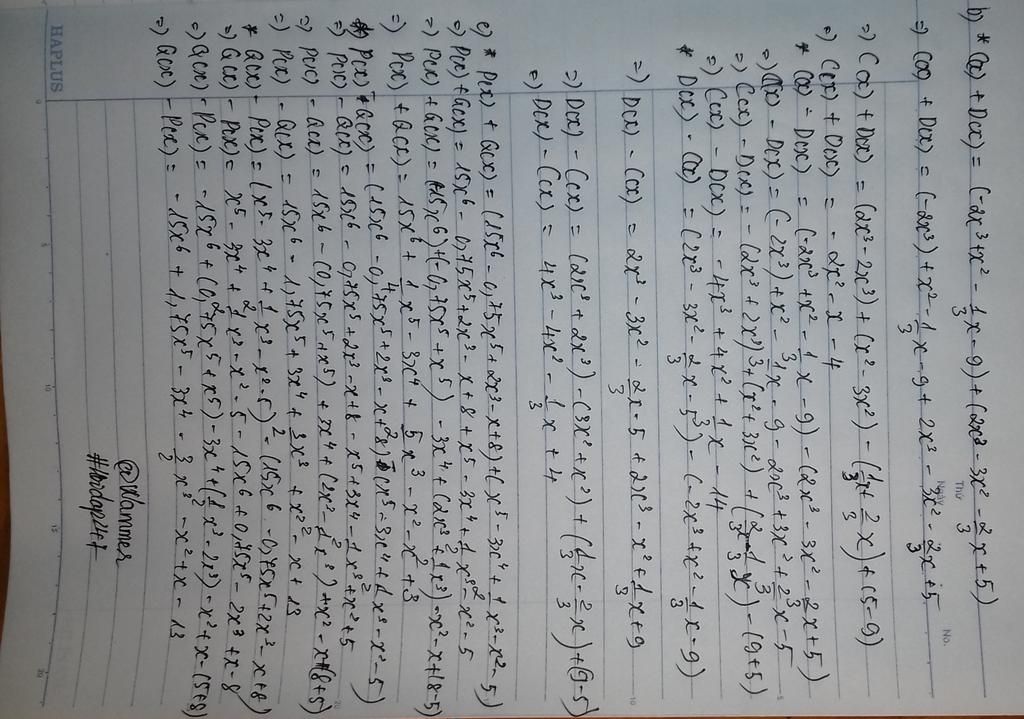 Thứ
Ngày
No.
b) * C(x) + D(x) = (-2x³+x² - 1/3 x - 9) + (2x³ - 3x² - 2/3 x + 5)
=) C(x) + D(x) = (-2x³) + x² - 1/3 x - 9 + 2x³ - 3x² - 2/3 x + 5
=) C(x) + D(x) = (2x³ - 2x³) + (x² - 3x²) - (1/3 x + 2/3 x) + (5-9)
=) C(x) + D(x) = - 2x² - x - 4
* C(x) - D(x) = (-2x³ + x² - 1/3 x - 9) - (2x³ - 3x² - 2/3 x + 5)
=) C(x) - D(x) = (-2x³) + x² - 1/3 x - 9 - 2x³ + 3x² + 2/3 x - 5
=) C(x) - D(x) = - (2x³ + 2x³) + (x² + 3x²) + (2/3 x - 1/3 x) - (9+5)
=) C(x) - D(x) = - 4x³ + 4x² + 1/3 x - 14
* D(x) - C(x) = (2x³ - 3x² - 2/3 x - 5) - (-2x³ + x² - 1/3 x - 9)
=) D(x) - C(x) = 2x³ - 3x² - 2/3 x - 5 + 2x³ - x² + 1/3 x + 9
=) D(x) - C(x) = (2x³ + 2x³) - (3x² + x²) + (1/3 x - 2/3 x) + (9-5)
=) D(x) - C(x) = 4x³ - 4x² - 1/3 x + 4
c) * P(x) + Q(x) = (15x⁶ - 0,75x⁵ + 2x³ - x + 8) + (x⁵ - 3x⁴ + 1/2 x³ - x² - 5)
=) P(x) + Q(x) = 15x⁶ - 0,75x⁵ + 2x³ - x + 8 + x⁵ - 3x⁴ + 1/2 x³ - x² - 5
=) P(x) + Q(x) = (15x⁶) + (-0,75x⁵ + x⁵) - 3x⁴ + (2x³ + 1/2 x³) - x² - x + (8-5)
=) P(x) + Q(x) = 15x⁶ + 1/4 x⁵ - 3x⁴ + 5/2 x³ - x² - x + 3
* P(x) - Q(x) = (15x⁶ - 0,75x⁵ + 2x³ - x + 8) - (x⁵ - 3x⁴ + 1/2 x³ - x² - 5)
=) P(x) - Q(x) = 15x⁶ - 0,75x⁵ + 2x³ - x + 8 - x⁵ + 3x⁴ - 1/2 x³ + x² + 5
=) P(x) - Q(x) = 15x⁶ - (0,75x⁵ + x⁵) + 3x⁴ + (2x³ - 1/2 x³) + x² - x + (8+5)
=) P(x) - Q(x) = 15x⁶ - 1,75x⁵ + 3x⁴ + 3/2 x³ + x² - x + 13
* Q(x) - P(x) = (x⁵ - 3x⁴ + 1/2 x³ - x² - 5) - (15x⁶ - 0,75x⁵ + 2x³ - x + 8)
=) Q(x) - P(x) = x⁵ - 3x⁴ + 1/2 x³ - x² - 5 - 15x⁶ + 0,75x⁵ - 2x³ + x - 8
=) Q(x) - P(x) = - 15x⁶ + (0,75x⁵ + x⁵) - 3x⁴ + (1/2 x³ - 2x³) - x² + x - (5+8)
=) Q(x) - P(x) = - 15x⁶ + 1,75x⁵ - 3x⁴ - 3/2 x³ - x² + x - 13
#hoidap247
HAPLUS
0
5
10
15
20